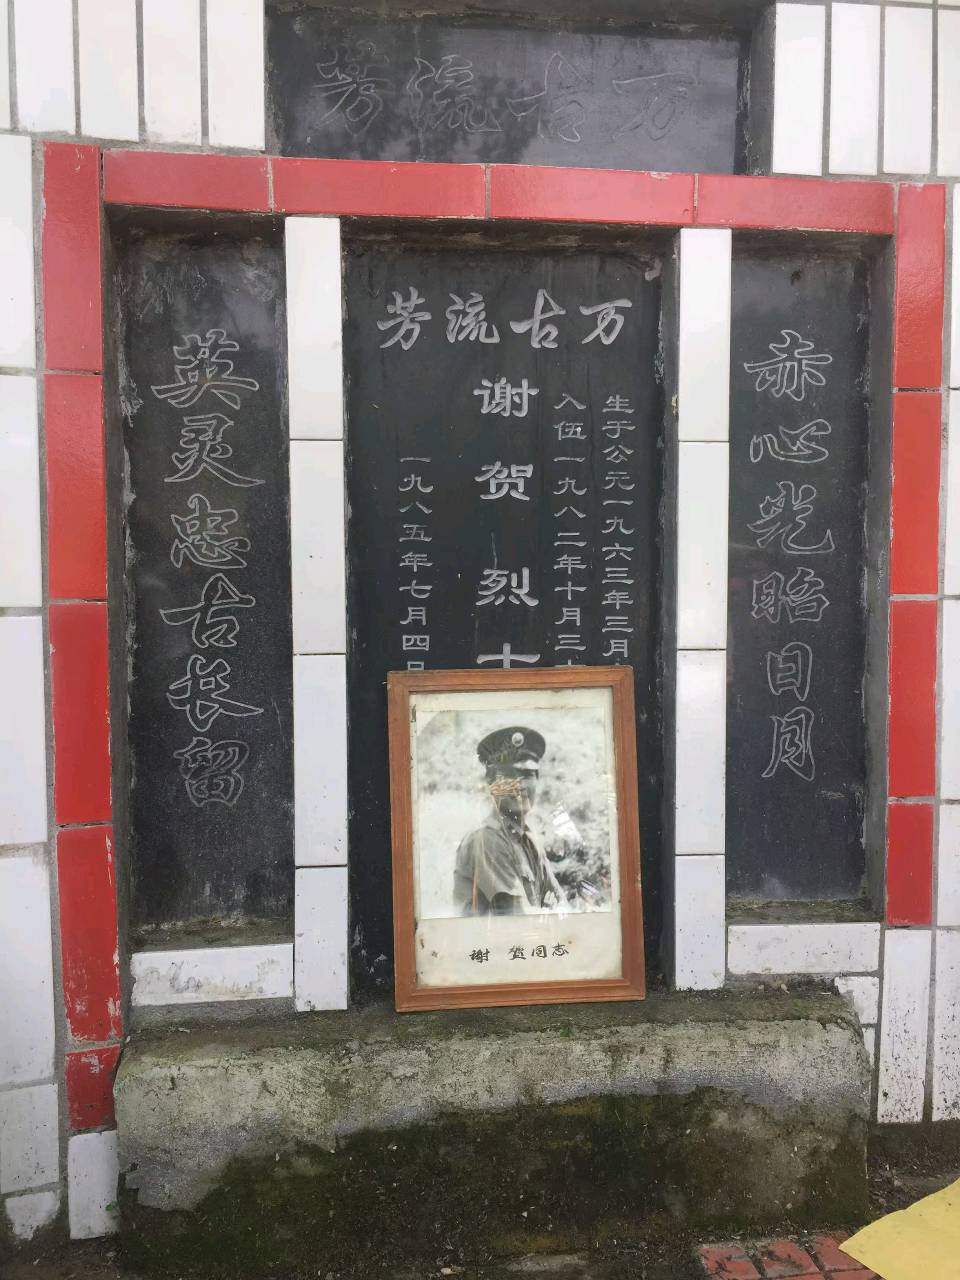 万古流芳
万古流芳
赤心光贻日月
生于公元一九六三年三月
入伍一九八二年十月三
谢贺烈士
一九八五年七月四日
英灵忠古长留
谢贺同志